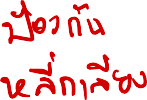 ป้องกัน
หลีกเลี่ยง